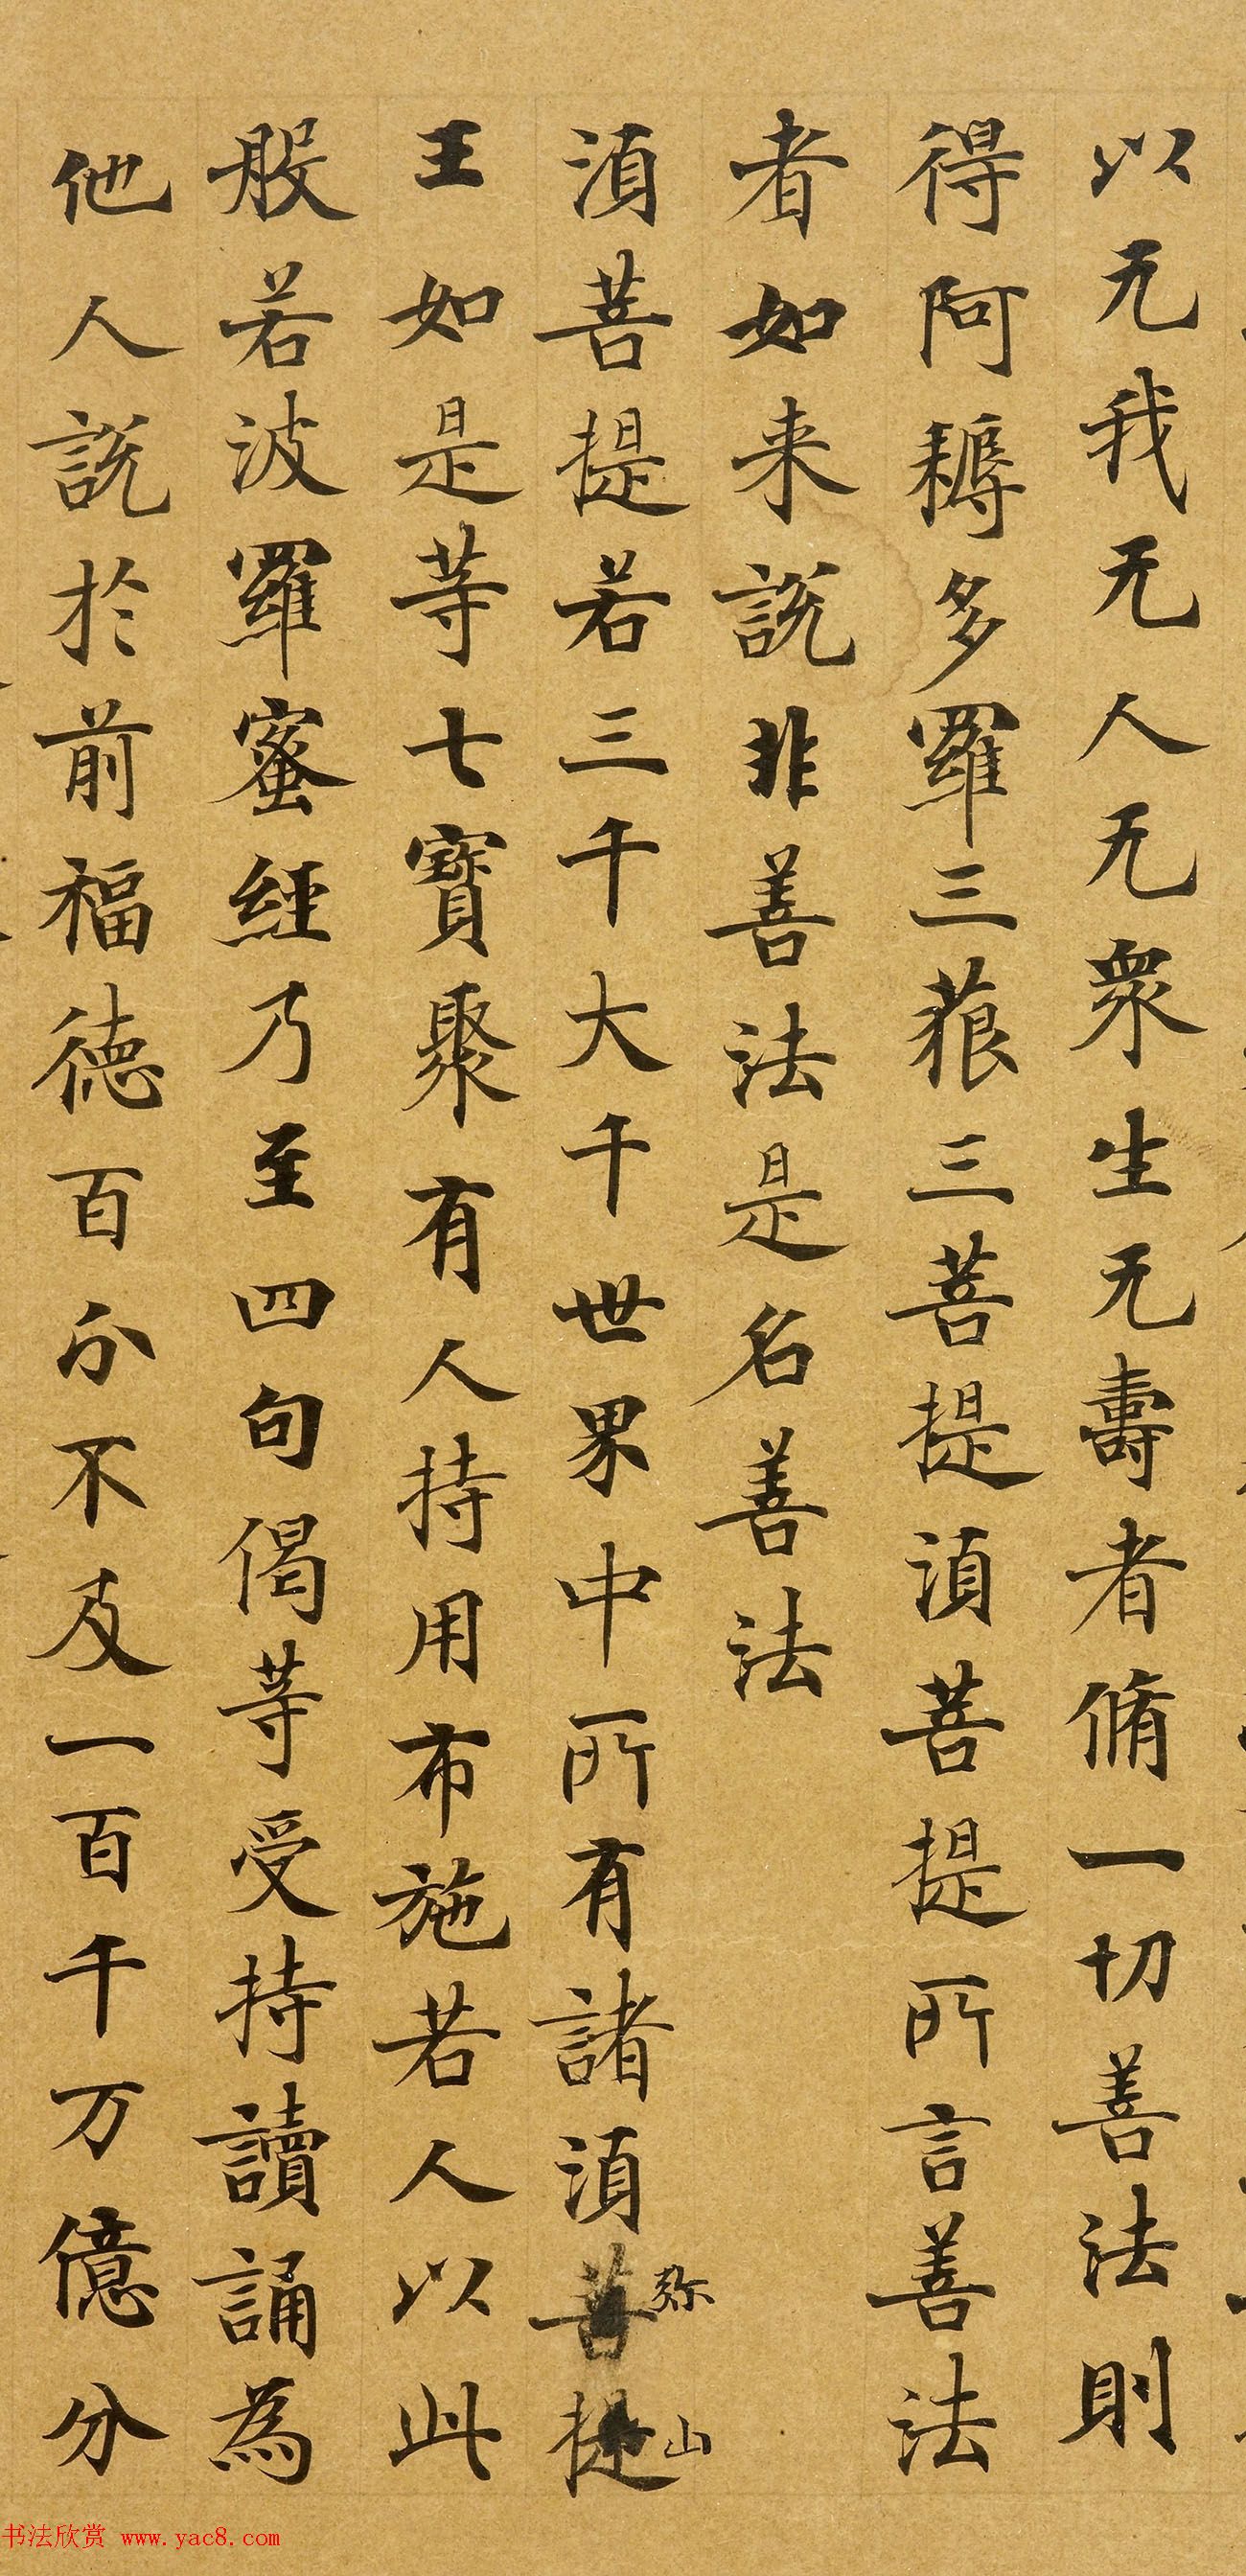 以无我无人无衆生无壽者脩一切善法則
得阿耨多羅三藐三菩提湏菩提所言善法
者如来説非善法是名善法
湏菩提若三千大千世界中所有諸湏菩提
弥
山
王如是等七寶聚有人持用布施若人以此
般若波羅蜜經乃至四句偈等受持讀誦為
他人説於前福德百分不及一百千万億分
书法欣赏 www.yac8.com